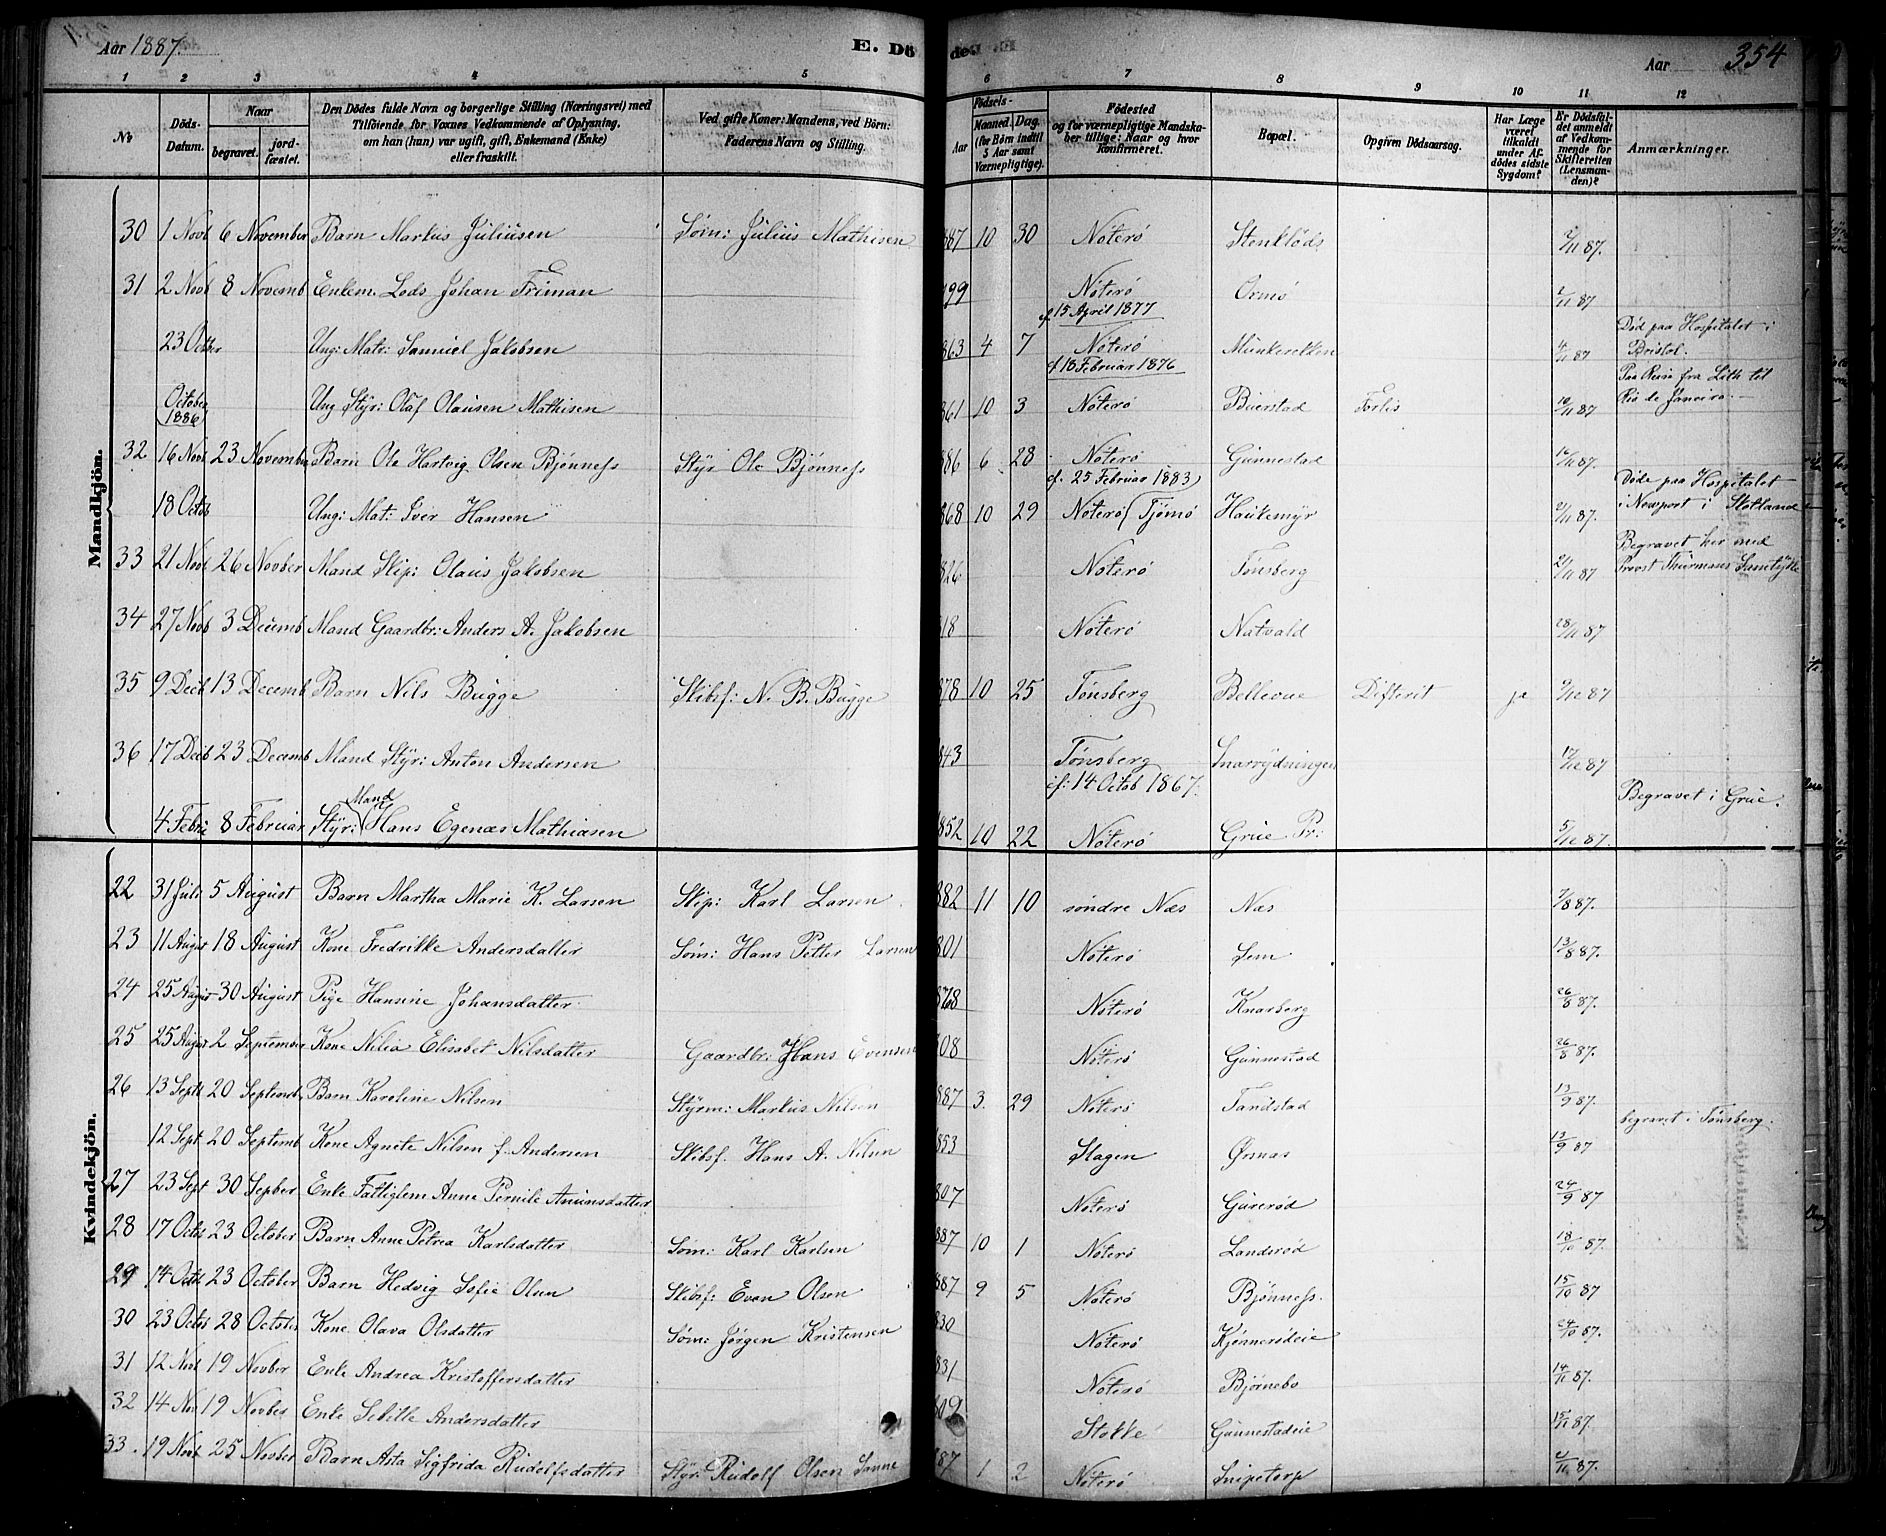 Aar 1887. E. Dö
de. Aar 354
1 2 3 4 5 6 7 8 9 10 11 12
No
Döds-Datum.
Naar
begravet. jordfæstet.
Den Dödes fulde Navn og borgerlige Stilling (Næringsvei) med
Tilföiende for Voxnes Vedkommende af Oplysning,
om han (hun) var ugift, gift, Enkemand (Enke)
eller fraskilt.
Ved gifte Koner: Mandens, ved Börn:
Faderens Navn og Stilling.
Födsels-
Aar Maaned. Dag.
(for Börn indtil
5 Aar samt
Værnepligtige).
Födested
og for værnepligtige Mandska-
ber tillige: Naar og hvor
konfirmeret.
Bopæl.
Opgiven Dödsaarsag.
Har Læge
været
tilkaldt
under Af-
dödes sidste
Sygdom?
Er Dödsfal-
det anmeldt
af Vedkom-
mende for
Skifteretten
(Lensman-
den)?
Anmærkninger.
Mandkjön.
30 1 Novb 6 November Barn Markus Juliusen Søm: Julius Mathisen 887 10 30 Nøterø Stenkløds 2/11 87.
31 2 Novb 8 Novemb Enkem. Lods Johan Friman 799 Nøterø Ormø 2/11 87
cf 15 April 1877
23 Octber Ung: Matr: Samuel Jakobsen 863 4 7 Nøterø Munkerekken 4/11 87 Død paa Hospitalet i
Bristol.
cf 13 Februar 1876
October 1886 Ung Styr: Olaf Olausen Mathisen 861 10 3 Nøterø Buerstad Forlis 10/11 87 Paa Reise fra Lith til
Rio de Janeiro.
32 16 Novb 23 November Barn Ole Hartvig Olsen Bjønness Styr Ole Bjønness 886 6 28 Nøterø Gunnestad 17/11 87.
cf. 25 Februar 1883
18 Octob Ung: Mat: Iver Hansen 868 10 29 Nøterø (Tjømø Haukemyr 21/11 87. Døde paa Hospitalet
i Newport i Skotland
33 21 Novb 26 Novber Mand Skip: Olaus Jakobsen 826 Nøterø Tønsberg 21/11 87 Begravet her med
Provst Thurmans Samtykke
34 27 Novb 3 Decemb Mand Gaardbr: Anders A. Jakobsen 818 Nøterø Natvald 28/11 87
35 9 Decb 13 Decemb Barn Nils Bugge Skibsf: N. B. Bugge 878 10 25 Tønsberg Bellevue Difterit ja 9/12 87
36 17 Decb 23 Decemb Mand Styr: Anton Andersen 843 Tønsberg Snarrydningen 17/12 87
cf: 14 Octob 1867.
4 Febru 8 Februar Styr: Mand Hans Egenæs Mathiasen 852 10 22 Nøterø Grue Pr: 5/12 87. Begravet i Grue.
Kvindekjön.
22 31 Juli 5 August Barn Martha Marie K. Larsen Skip: Karl Larsen 882 11 10 søndre Næs Næs 7/8 87.
23 11 August 18 August Kone Fredrikke Andersdatter Søm: Hans Petter Larsen 801 Nøterø Lem 13/8 87.
24 25 August 30 August Pige Hansine Johansdatter. 8768 Nøterø Knarberg 26/8 87.
25 25 August 2 September Kone Nilia Elisabet Nilsdatter Gaardbr: Hans Evensen 808 Nøterø Gunnestad 26/8 87.
26 13 Septb 20 Septemb Barn Karoline Nilsen Styrm: Markus Nilsen 887 3. 29 Nøterø Tandstad 13/9 87.
12 Sept 20 Septemb Kone Agnete Nilsen f. Andersen Skibsf. Hans A. Nilsen 853 Slagen Ørsnæs 13/9 87 begravet i Tønsberg.
27 23 Sept 30 Septber Enke Fattiglem Anne Pernile Amunsdatter 807 Nøterø Gurerød 24/9 87
28 17 Octob 23 October Barn Anne Petrea Karlsdatter Søm: Karl Karlsen 887 10 1 Nøterø Landsrød 18/10 87.
29 14 Octob 23 October Barn Hedvig Sofie Olsen Skibsf: Even Olsen 887 9 5 Nøterø Bjønness. 15/10 87
30 23 Octob 28 October Kone Olava Olsdatter Søm: Jørgen Kristensen 830 Nøterø Kjønnerødeie 24/10 87.
31 12 Novb 19 Novber Enke Andrea Kristoffersdatter 831 Nøterø Bjørnebo 14/11 87.
32 14 Nov 19 Novber Enke Sebille Andersdatter 809 Stokke Gunnestadeie 15/11 87.
33. 19 Novb 25 Novber Barn Asta Sigfrida Rudolfsdatter Styr: Rudolf Olsen Sanne 87 1 2 Nøterø Snipetorp 87.